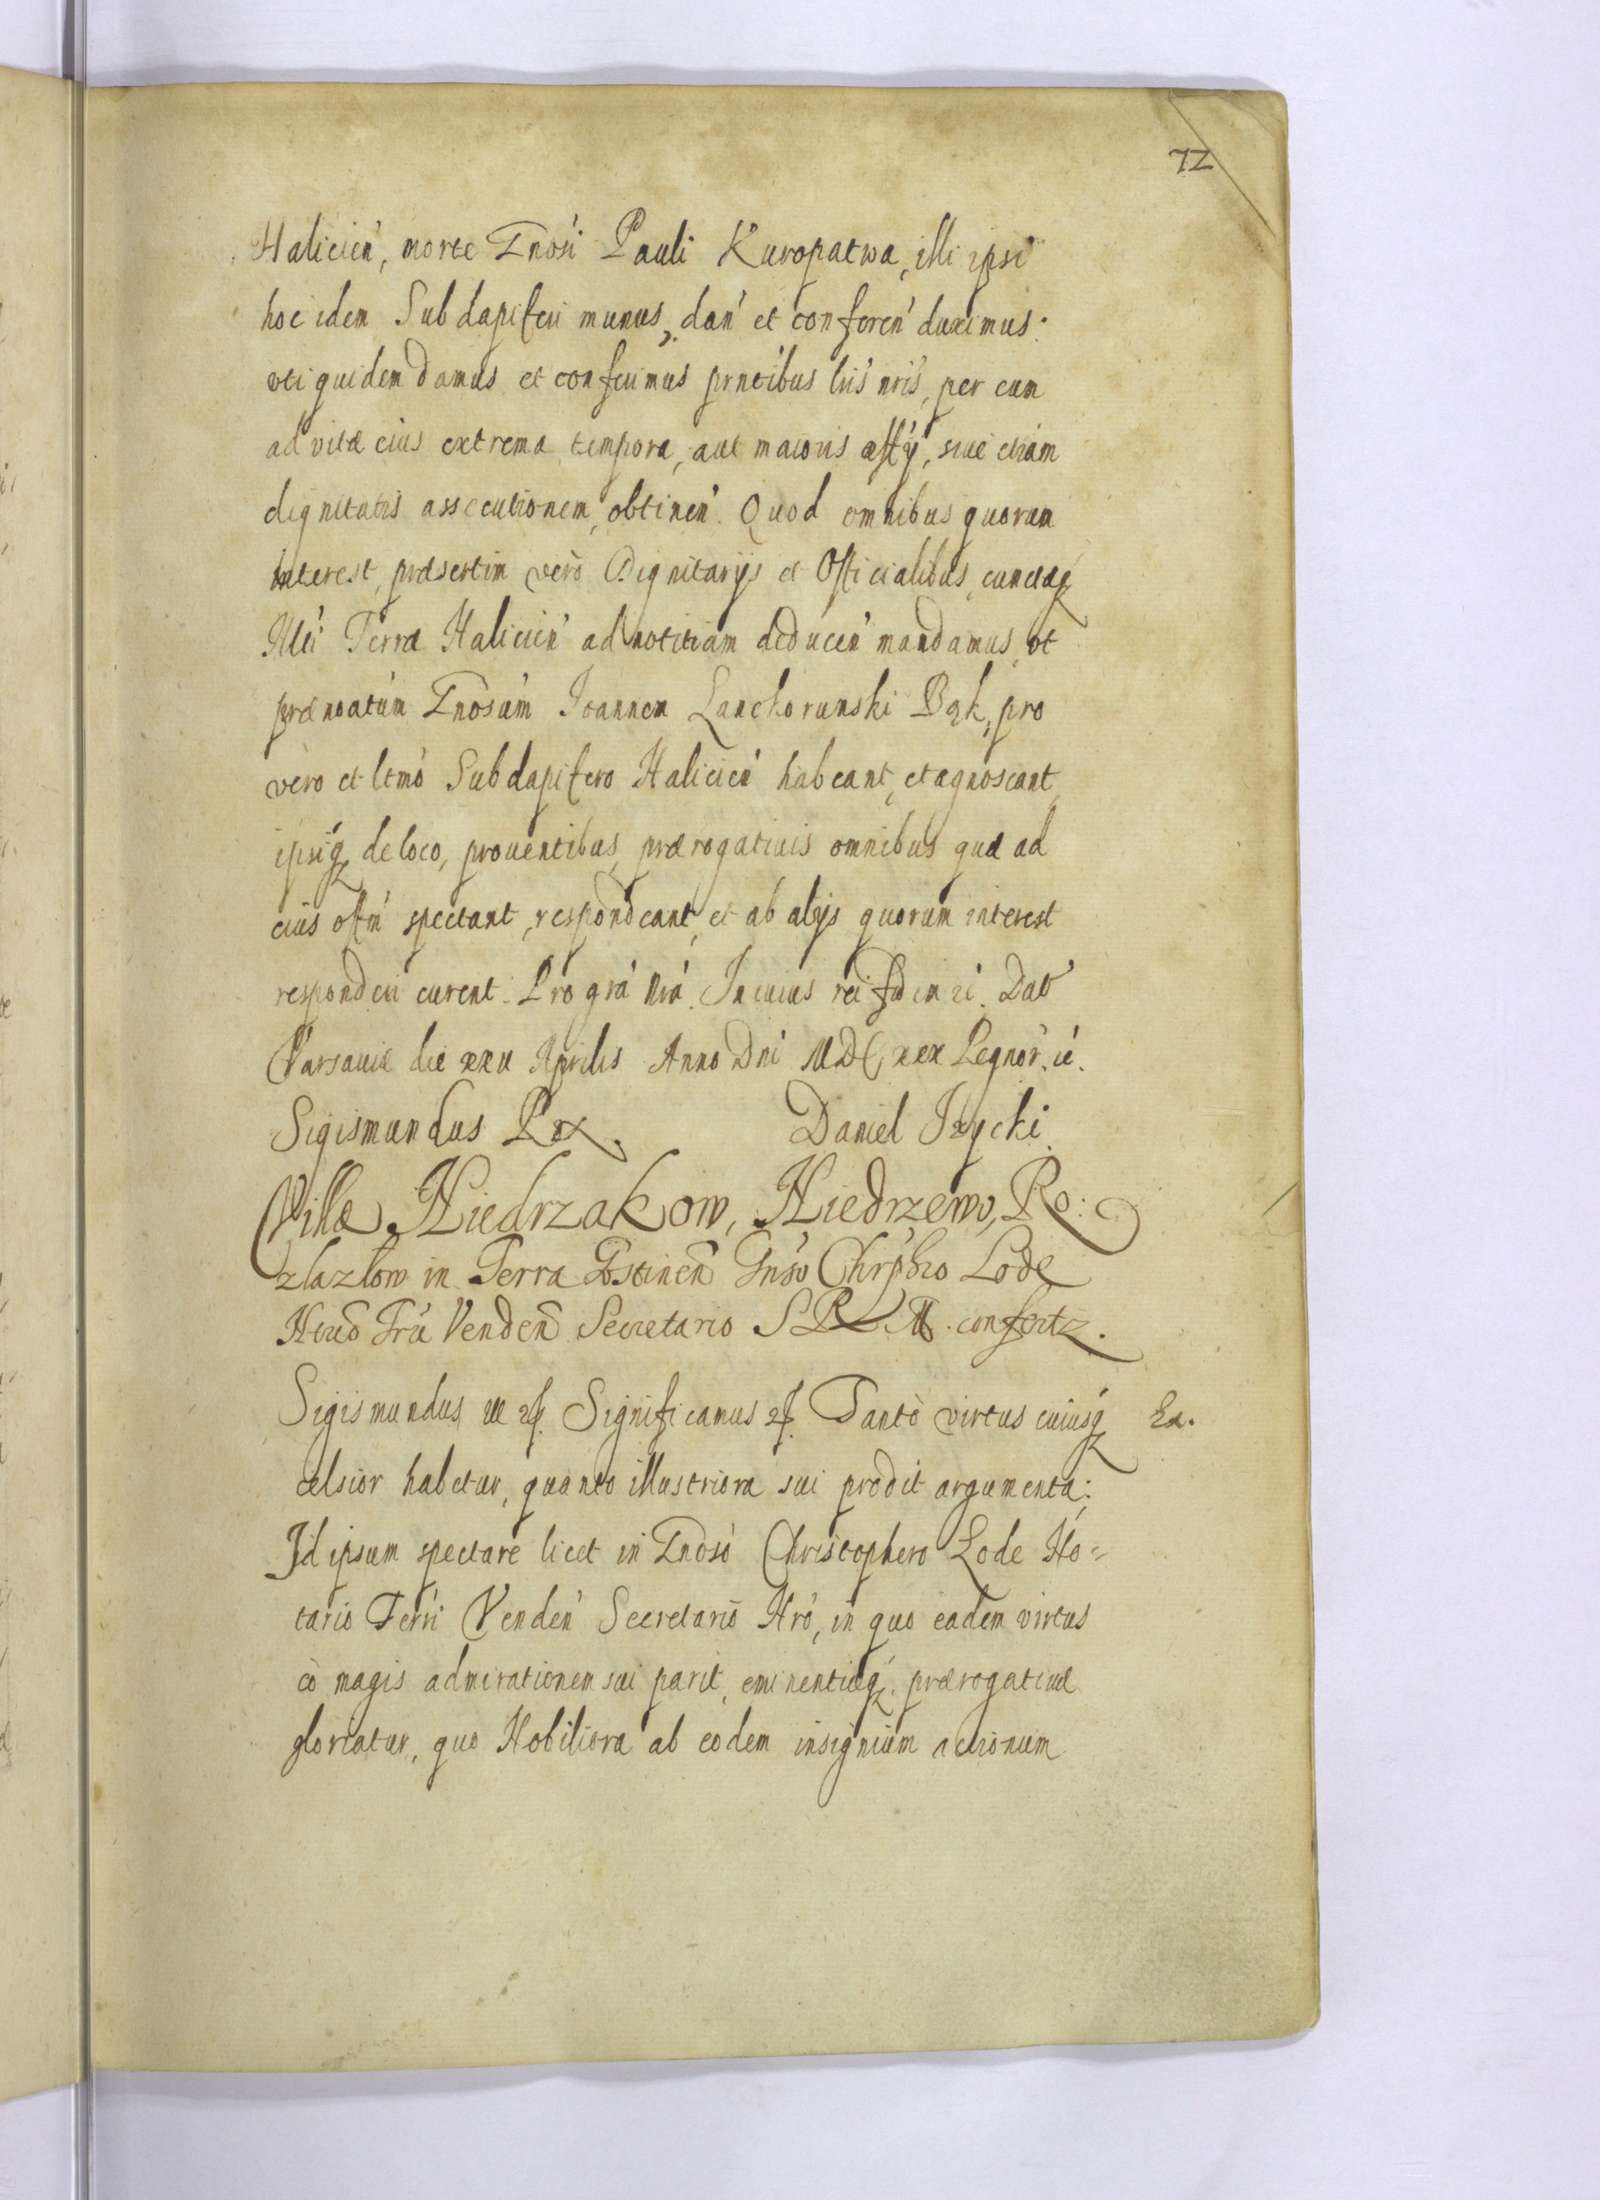 72
Halicien̄, morte Gnōsi Pauli Kuropatwa, illi ipsi
hoc idem Subdapiferi munus, dan̄ et conferen̄ duximus:
vti quidem damus et conferimus prn̄tibus lr̄is nr̄is, per eum
ad vitæ eius extrema tempora, aut maioris offij, siue etiam
dignitatis assecutionem, obtinen̄. Quod omnibus quorum
interest, præsertim verò Dignitarijs et Officialibus, cunctæq̄
Nlti Terræ Halicien̄ ad notitiam deducen̄ mandamus, vt
prænoatum Gnōsum Joannem Lanckorunski Bąk, pro
vero et ltmo Subdapifero Halicien̄ habeant, et agnoscant,
ipsiq̄ de loco, prouentibus, prærogatiuis omnibus quæ ad
eius offm̄ spectant, respondeant, et ab alijs quorum interest
responderi curent. Pro grā nrā. In cuius rei fidem zc̄. Dat
Varsauiæ die xxv Aprilis Anno Dnī MDCxxx Regnor̄. zc̄.
Sigismundus Rex. Daniel Izycki
Villæ Niedrzakow, Niedrzewo, Ro:
zlazlow in Terra Gostinen̄ Gn̄so Chrp̄hro Lode
Nrio Trri Venden̄ Secretario S R M. confertz.
Sigismundus III zc. Significamus zc. Tantò virtus cuiusq̄ Ex.
celsior habetur, quanto illustriora sui prodit argumenta:
Id ipsum spectare licet in Gnōso Christophero Lode No=
tario Terri Venden̄ Secretario Nrō, in quo eadem virtus
eò magis admirationem sui parit, eminentiæq̄ prærogatiua
gloriatur, quo Nobiliora ab eodem insignium actionum